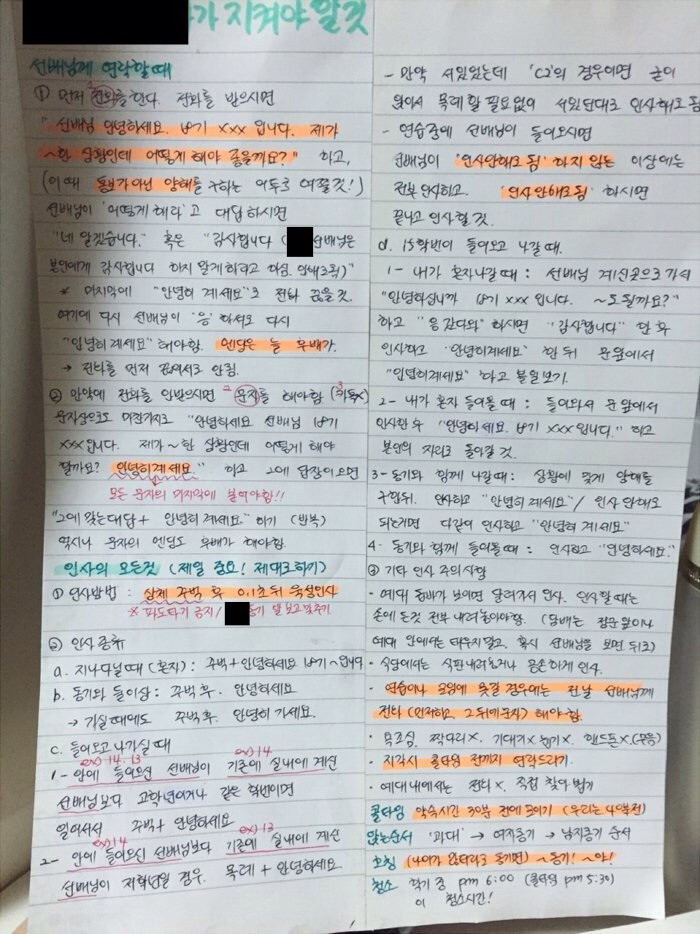 가 지켜야 할 것
선배님께 연락할 때
① 먼저 전화를 한다. 전화를 받으시면
"선배님 안녕하세요. 15기 XXX 입니다. 제가
~한 상황인데 어떻게 해야 좋을까요?" 하고,
(이때 통보가 아닌 양해를 구하는 어투로 여쭐것!)
선배님이 '어떻게 해라'고 대답하시면
"네 알겠습니다." 혹은 "감사합니다 ( 선배님은
본인에게 감사합니다 하지 말게 하라고 하심. 안해도됨)"
* 마지막에 "안녕히 계세요"로 전화 끊을것.
여기에 다시 선배님이 '응' 하셔도 다시
"안녕히계세요" 해야함. 엔딩은 늘 후배가.
→ 전화를 먼저 끊어서도 안됨.
② 만약에 전화를 안받으시면 문자를 해야함 (카톡X)
문자상으로도 마찬가지로 "안녕하세요 선배님 15기
XXX입니다. 제가 ~한 상황인데 어떻게 해야
할까요? 안녕히계세요" 하고 그에 답장이오면
모든 문자의 마지막에 붙여야함!!
"그에 맞는 대답 + 안녕히 계세요" 하기 (반복)
역시나 문자의 엔딩도 후배가 해야함.
인사의 모든것 (제일 중요! 제대로하기)
① 인사방법 : 상체 주박 후 0.1초뒤 육성인사
* 파도타기 금지/ 동기 말 보고 맞추기
② 인사 종류
a. 지나다닐때 (혼자) : 주박+안녕하세요 15기~입니다
b. 동기와 둘이상 : 주박 후. 안녕하세요
→ 가실 때에도 주박후. 안녕히 가세요.
c. 들어오고 나가실 때
ex) 14. 13 ex) 14
1- 안에 들어오신 선배님이 기존에 실내에 계신
선배님보다 고학년이거나 같은 학번이면
일어서서 주박+ 안녕하세요
ex) 14 ex) 13
2- 안에 들어오신 선배님보다 기존에 실내에 계신
선배님이 저학년일 경우. 목례 + 안녕하세요.
- 만약 서있었는데 'C2'의 경우이면 굳이
앉아서 목례 할 필요없이 서있던대로 인사해도 됨
- 연습중에 선배님이 들어오시면
선배님이 '인사안해도 됨' 하지 않는 이상에는
전부 인사하고. '인사안해도됨' 하시면
끝나고 인사할 것.
d. 15학번이 들어오고 나갈 때.
1- 내가 혼자나갈 때 : 선배님 계신곳으로 가서
"안녕하십니까 15기 XXX 입니다. ~도될까요?"
하고 "응 갔다와" 하시면 "감사합니다" 한 후
인사하고 '안녕히계세요' 한 뒤 문앞에서
"안녕히계세요" 하고 볼일보기.
2- 내가 혼자 들어올 때 : 들어와서 문앞에서
인사한 후 "안녕하세요. 15기 XXX입니다." 하고
본인의 자리로 돌아갈 것.
3- 동기와 함께 나갈 때 : 상황에 맞게 양해를
구한뒤. 인사하고 "안녕히 계세요" / 인사 안해도
되는거면 다같이 인사하고 "안녕히 계세요"
4- 동기와 함께 들어올 때 : 인사하고 "안녕하세요."
③ 기타 인사 주의사항
- 예대 동배가 보이면 달려가서 인사. 인사할 때는
손에 든것 전부 내려놓아야함. (담배는 정문앞이나
예대 안에서는 태우지말고, 혹시 선배님을 보면 뒤로)
- 식당에서는 식판내려놓거나 공손하게 인사.
- 연습이나 모임에 못갈 경우에는 전날 선배님께
전화 (먼저하고 그뒤에문자) 해야 함.
- 목조심. 짝다리X. 기대기X 핸드폰X.(무음)
- 지각시 콜타임 전까지 연락드리기.
- 예대 내에서는 전화X. 직접 찾아 뵙기
콜타임 약속시간 30분 전에 모이기 (우리는 40분전)
앉는순서 '과대' → 여자동기 → 남자동기 순서
호칭 (나이가 많더라도 동기면) ~동기! ~야!
청소 학기 중 pm 6:00 (콜타임 pm 5:30)
이 청소시간!